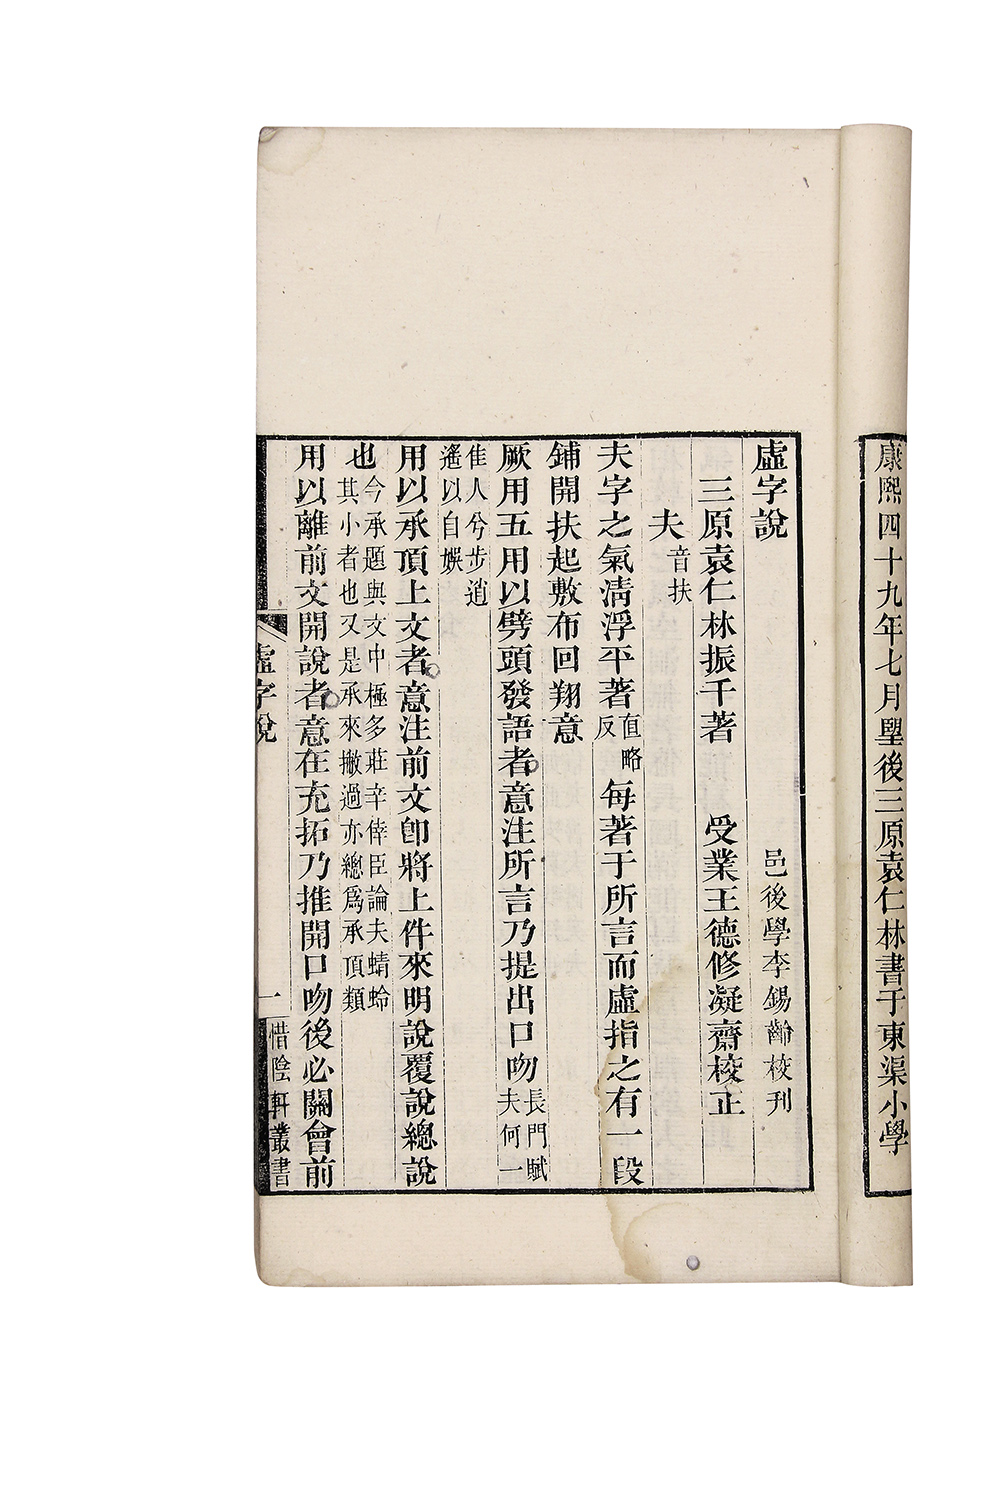 康熙四十九年七月朢後三原袁仁林書于東渠小學
虛字說
邑後學李錫齡校刊
三原袁仁林振千著
受業王德修凝齋校正
夫音扶
夫字之氣清浮平著直略反每著于所言而虛指之有一段
鋪開扶起敷布回翔意
厥用五用以劈頭發語者意注所言乃提出口吻長門賦夫何一
佳人兮步逍遙以自娛
用以承頂上文者意注前文卽將上件來明說覆說總說
也今承題與文中極多莊辛倖臣論夫蜻蛉其小者也又是承來撇過亦總爲承頂類
用以離前文開說者意在充拓乃推開口吻後必關會前
虛字說
一
惜陰軒叢書